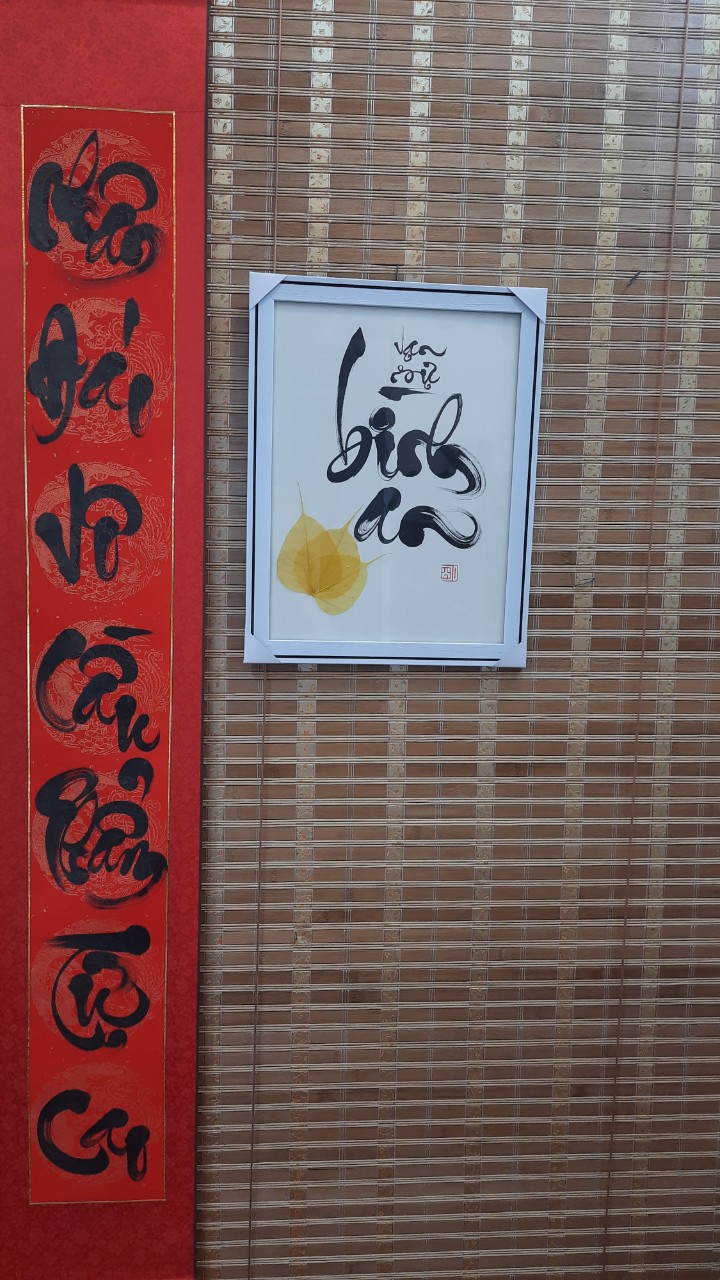 Nhân
Đáo
Vô
Cầu
Phẩm
Tự
Cao
vạn
sự
bình
an